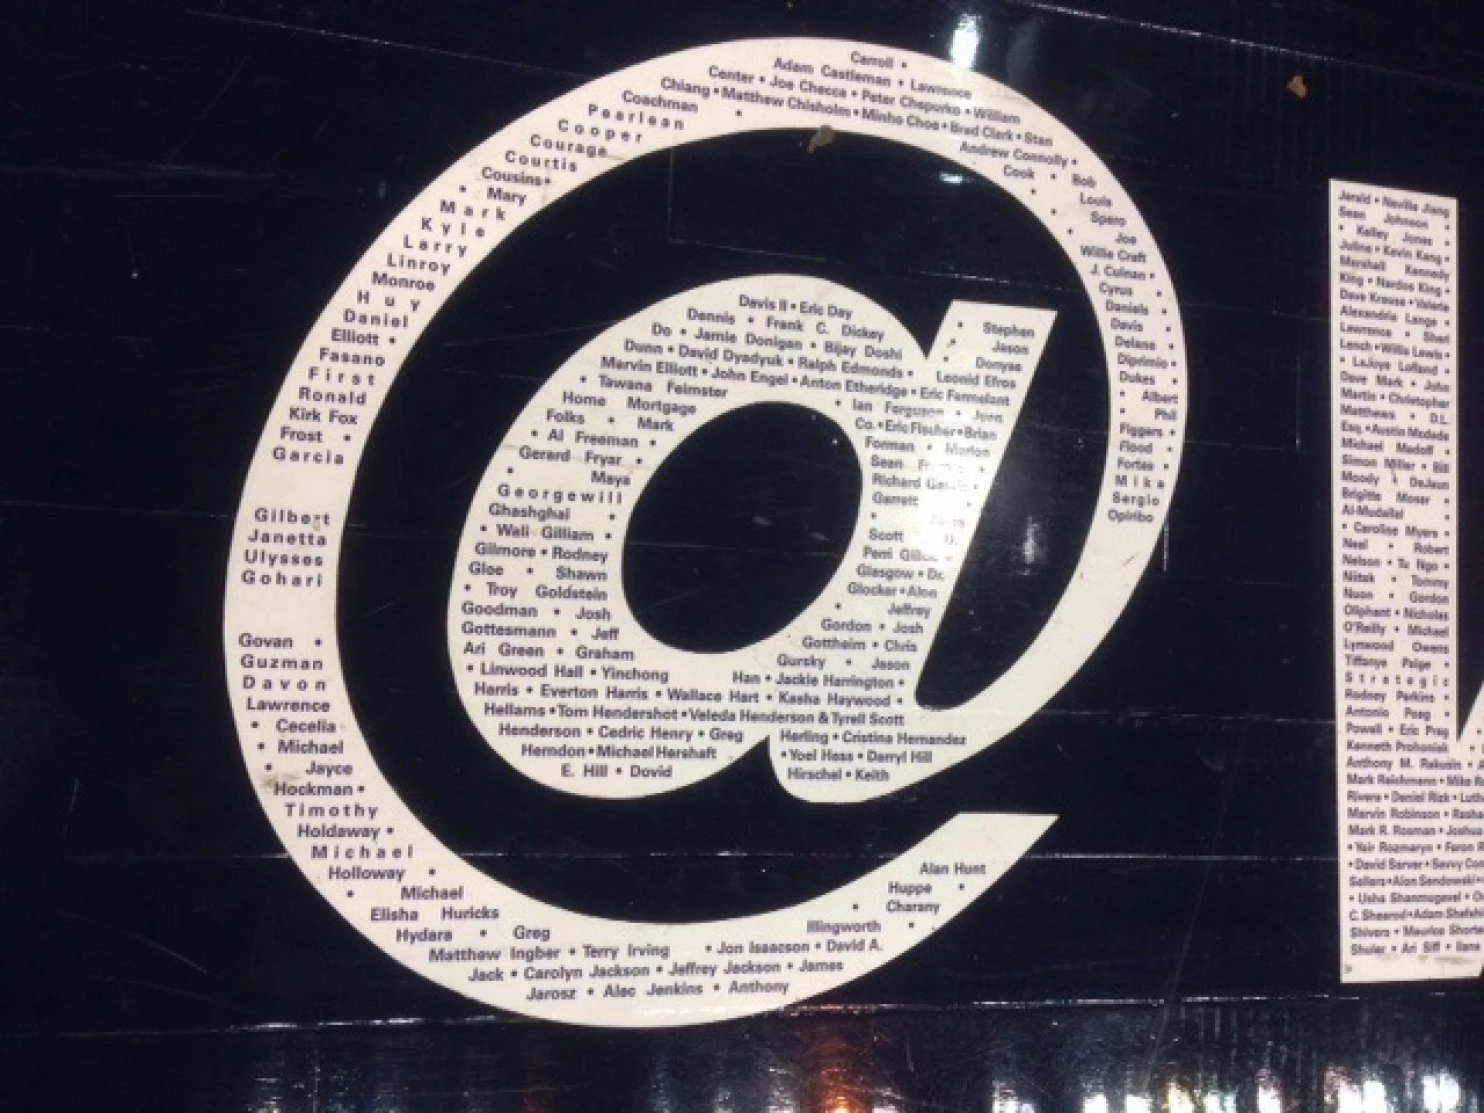 Carroll •
Adam Castleman • Lawrence
Center • Joe Checca • Peter Chepurko • William
Chiang • Matthew Chisholm • Minho Choe • Brad Clark • Stan
Coachman •
Pearlean Andrew Connolly •
Cooper Cook • Bob
Courage • Louis
Courtis • Spero
Cousins • • Joe
• Mary Willie Craft
Mark J. Culnan •
Kyle Cyrus •
Larry Daniels •
Linroy Davis •
Monroe Delane •
Huy Diprimio •
Daniel Dukes •
Elliott • • Albert
Fasano • Phil
First Figgers •
Ronald Flood •
Kirk Fox Fortes •
Frost • Mike
Garcia Sergio
Opiribo
Gilbert
Janetta
Ulysses
Gohari
Govan •
Guzman
Davon
Lawrence
• Cecelia
• Michael
• Jayce
Hockman •
Timothy
Holdaway •
Michael
Holloway •
• Michael
Elisha Huricks
Hydara • Greg
Matthew Ingber • Terry Irving
Alan Hunt
Huppe •
• Charany
Illingworth •
• Jon Isaacson • David A.
Jack • Carolyn Jackson • Jeffrey Jackson • James
Jarosz • Alec Jenkins • Anthony
Davis II • Eric Day
Dennis • Frank C. Dickey • Stephen
Do • Jamie Donigan • Bijay Doshi • Jason
Dunn • David Dyadyuk • Ralph Edmonds • • Donyae
Leonid Efros
Marvin Elliott • John Engel • Anton Etheridge • Eric Farmelant
• Tawana Feimster • Ian Ferguson • Jorn
Home Mortgage Co. • Eric Fleuher • Brian
Folks • Mark Forman • Marlon
• Al Freeman • Sean
Gerard Fryar • Richard
• Maya Garrett
Georgewill •
Ghashghai • Scott
• Wali Gilliam • Perri
Gilmore • Rodney Glasgow • Dr.
Glee • Shawn Glocker • Alon
• Troy Goldstein • Jeffrey
Goodman • Josh Gordon • Josh
Gottesmann • Jeff Gottheim • Chris
Ari Green • Graham Gursky • Jason
• Linwood Hall • Yinchong Han • Jackie Harrington •
Harris • Everton Harris • Wallace Hart • Kasha Haywood •
Hellams • Tom Hendershot • Veleda Henderson & Tyrell Scott
Henderson • Cedric Henry • Greg Herling • Cristina Hernandez
Herndon • Michael Hershaft • Yoel Hess • Darryl Hill
E. Hill • Dovid Hirschel • Keith
Jerald • Neville Jiang
Sean Johnson •
• Kelley Jones •
Juline • Kevin Kang •
Marshall Kennedy
King • Nardos King •
Dave Krause • Valerie
Alexandria Lange •
Lawrence • Shari
Lerch • Willie Lewis •
• LaJoya Lofland •
Dave Mark • John
Martin • Christopher
Matthews • D.L.
Esq. • Austin Mcdade
Michael Medoff •
Simon Miller • Bill
Moody • DeJaun
Brigitte Moser •
Al-Mudallal •
• Caroline Myers •
Neel • Robert
Nelson • Tu Ngo •
Nitek • Tommy
Nuon • Gordon
Oliphant • Nicholas
O'Reilly • Michael
Lynwood Owens
Tiffanye Paige •
Strategic
Rodney Perkins •
Antonio Poag •
Powell • Eric Prag
Kenneth Prohoniak
Anthony M. Rakusin •
Mark Reichmann • Mike
Rivera • Daniel Rizk •
Marvin Robinson •
Mark R. Rosman •
• Yair Rozmaryn • Faron
• David Sarver • Savvy
Sellers • Alon Sendowski •
• Usha Shanmugavel •
C. Shearod • Adam
Shivers • Maurice
Shuler • Ari Siff • Ilana